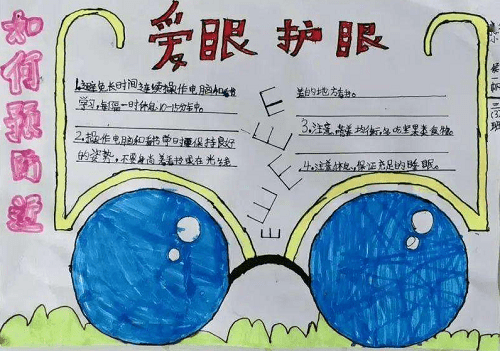 爱眼护眼
如何预防近
1.避免长时间连续操作电脑和
学习,每隔一时休息10-15分钟。
2.操作电脑和看书时要保持良好
的姿势,不要躺着看书或在光线
差的地方看书。
3.注意营养均衡,多吃坚果食物。
4.注意休息,保证充足的睡眠。
E
E
E
E
E
三
班